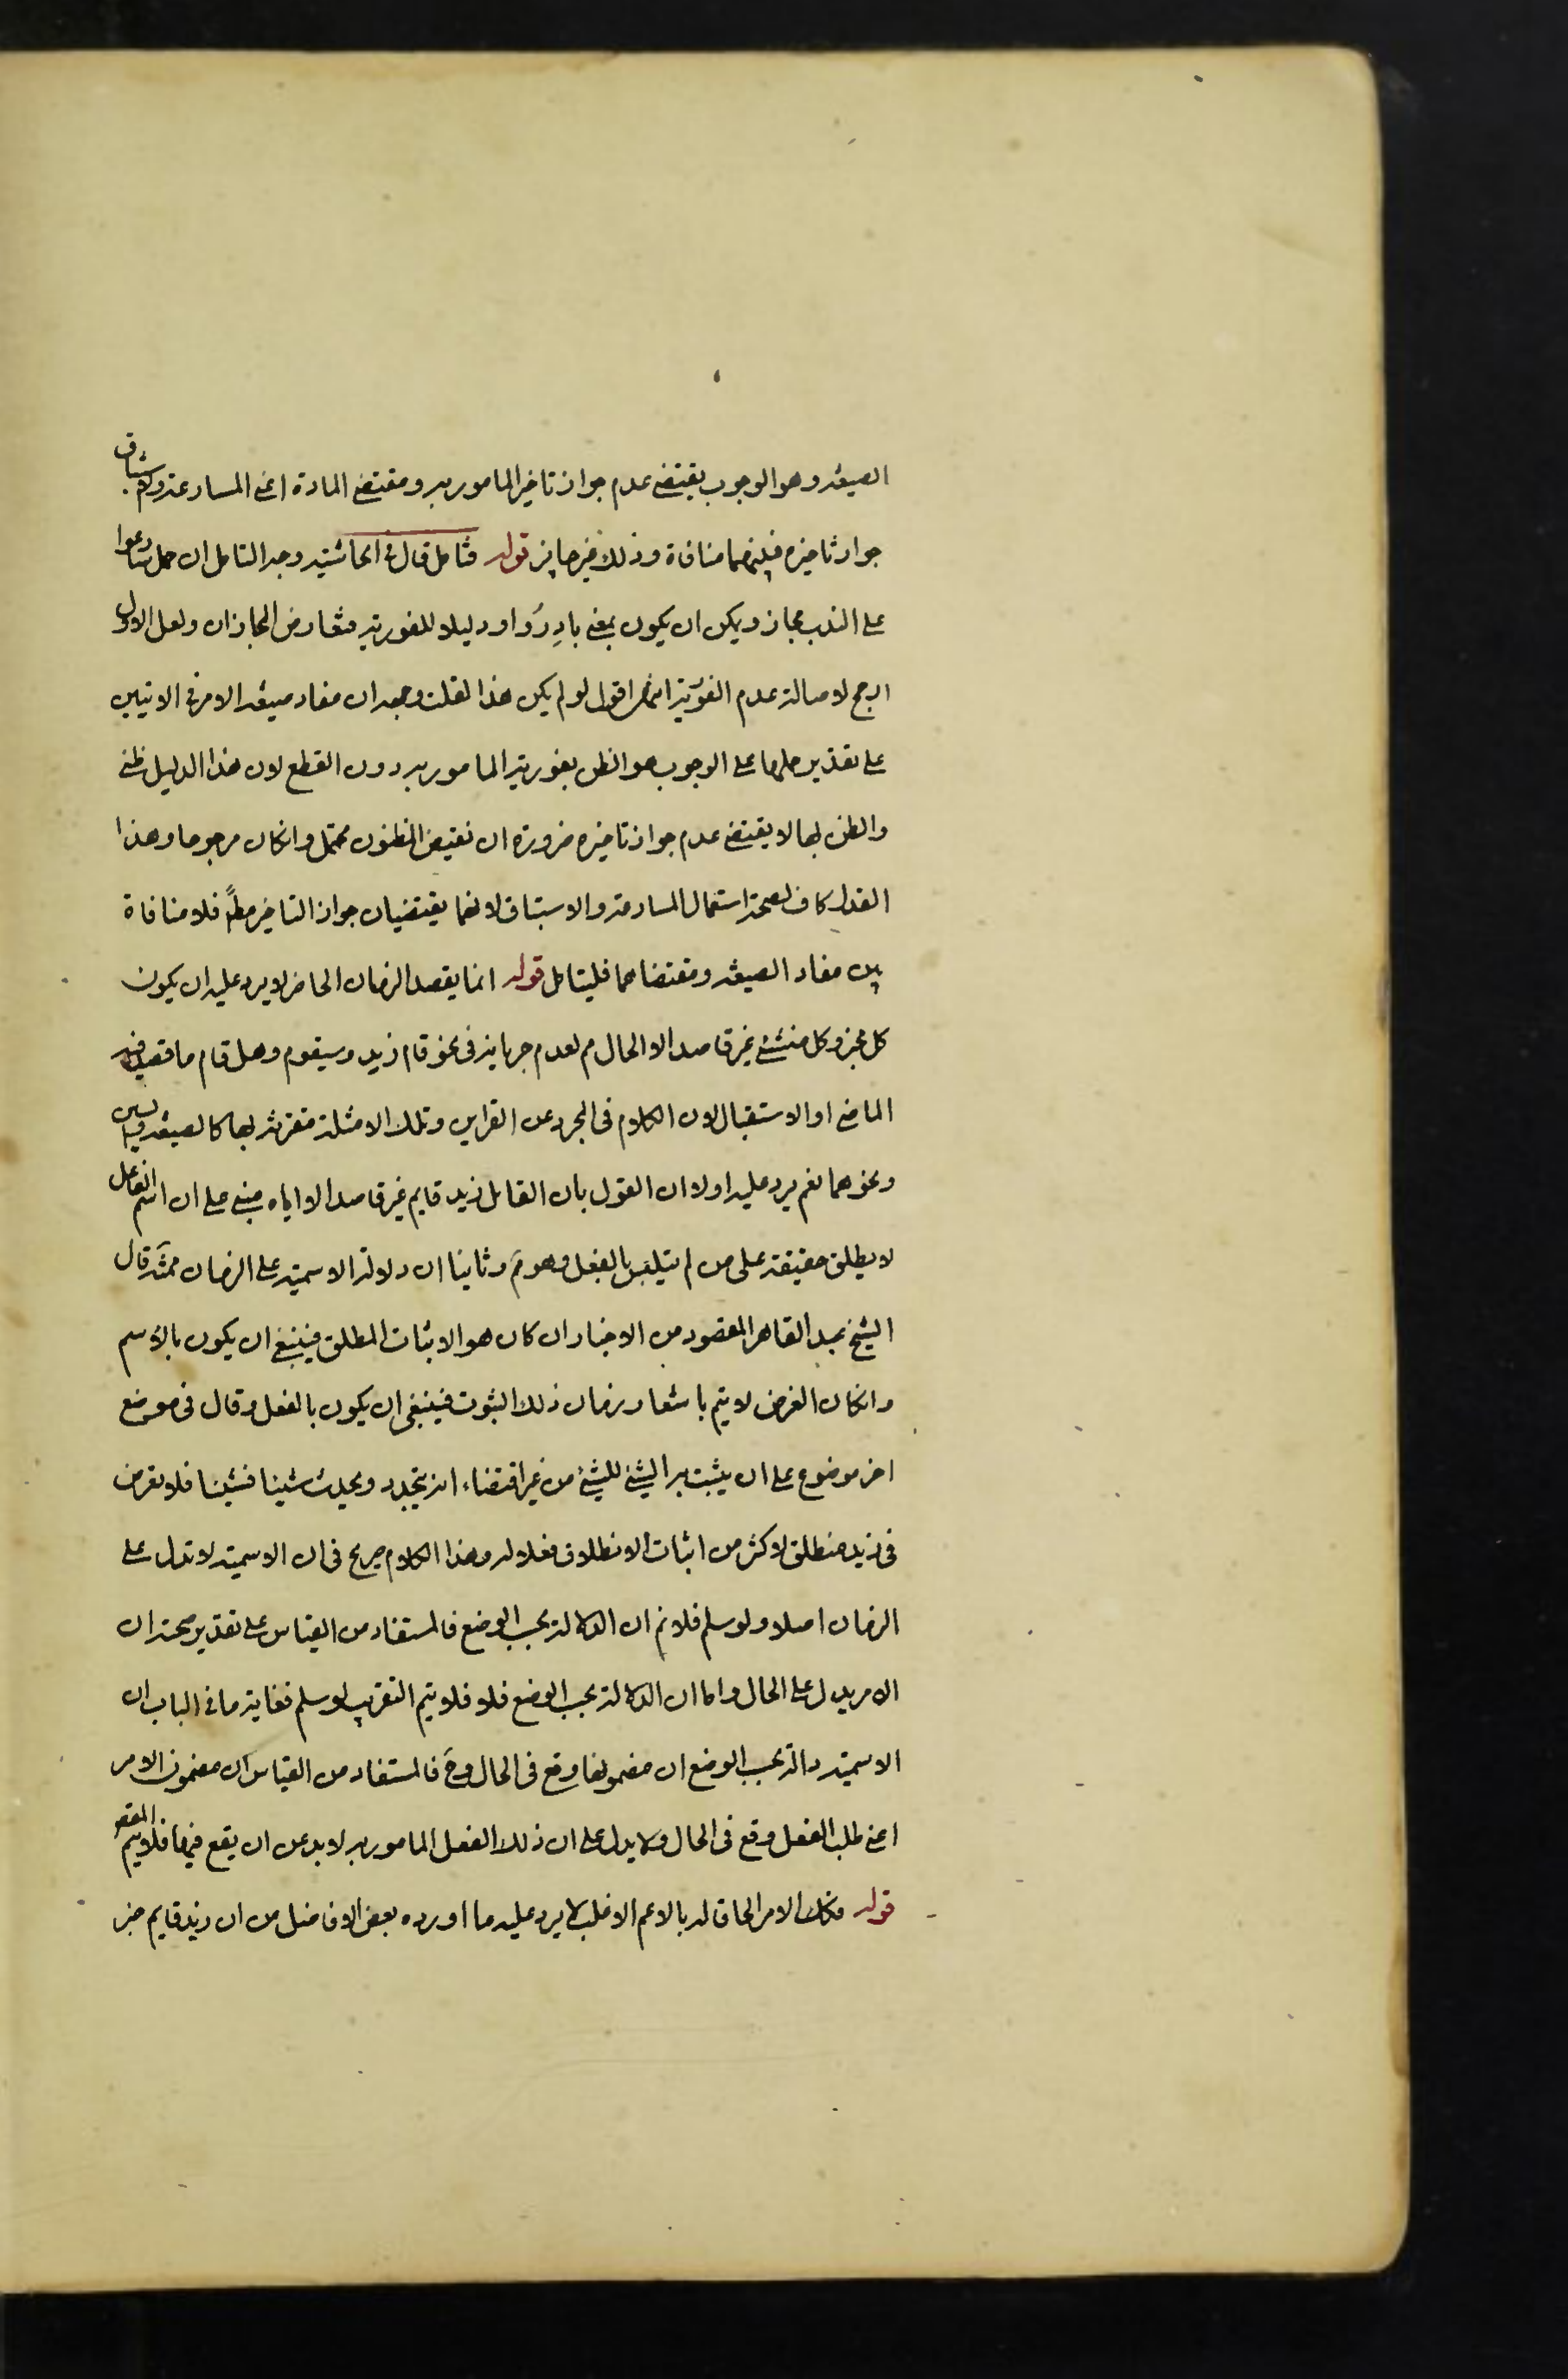 الصيغه وهو الوجوب يقتضى عدم جواز تاخير المامور به ومقتضى المادة اعنى المسارعة والاستباق
جواز تاخيره فبينهما منافاة وذلك غير جايز قوله فتامل قال فى الحاشيه وجه التامل ان حمل سارعوا
على الندب مجاز ويمكن ان يكون بمعنى بادِرُوا ودليلا للفورية فتعارض المجازان ولعل الاول
ارجح لاصالة عدم الفوريّة انتهى اقول لو لم يكن هذا لقلت وجهه ان مفاد صيغه الامر فى الايتين
على تقدير حملها على الوجوب هو الظن بفورية المامور به دون القطع لان هذا الدليل ظنى
والظن بها لا يقتضى عدم جواز تاخيره ضرورة ان نقيض المظنون محتمل وانكان مرجوحا وهذا
القدر كاف لصحة استعمال المسارعة والاستباق لانهما يقتضيان جواز التاخير مطلقاً فلا منافاة
بين مفاد الصيغه ومقتضاهما فليتامل قوله انما يقصد الزمان الحاضر لا يرد عليه ان يكون
كل مخبر وكل منشئ غير قاصد الا الحال م لعدم جريانه فى نحو قام زيد وسيقوم وهل قام ما قصد فيه
الماضى او الاستقبال لان الكلام فى المجرد عن القراين وتلك الامثلة مقترنة بها كالصيغه والسين
ونحوهما نعم يرد عليه اولا ان القول بان القائل زيد قايم غير قاصد الا اياه مبنى على ان اسم الفاعل
لا يطلق حقيقة على من لم يتلبس بالفعل وهو مَ وثانيا ان دلالة الاسمية على الزمان ممنّه قال
الشيخ عبد القاهر المقصود من الاخبار ان كان هو الاثبات المطلق فينبغى ان يكون بالاسم
وانكان الغرض لا يتم باشعار زمان ذلك الثبوت فينبغى ان يكون بالفعل وقال فى موضع
اخر موضوع على ان يثبت به الشئ للشئ من غير اقتضاء انه يتجدد ويحدث شيئا فشيئا فلا تعرض
فى زيد منطلق لاكثر من اثبات الانطلاق فعلا له وهذا الكلام صريح فى ان الاسمية لا تدل على
الزمان اصلا ولو سلم فلا نم ان الدلالة بحسب الوضع فالمستفاد من القياس على تقدير صحته ان
الامر يدل على الحال واما ان الدلالة بحسب الوضع فلا فلا يتم التقريب ولو سلم فغاية ما فى الباب ان
الاسمية دالة بحسب الوضع ان مضمونها وقع فى الحال وحَ فالمستفاد من القياس ان مضمون الامر
اعنى طلب الفعل وقع فى الحال ولا يدل على ان ذلك الفعل المامور به لا بد من ان يقع فيها فلا يتم المقصو
قوله فكك الامر الحاقا له بالاعم الاغلب لا يرد عليه ما اورده بعض الافاضل من ان زيد قايم خبر